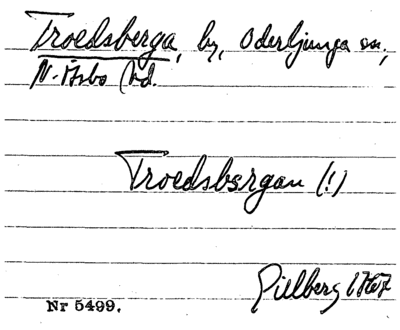 Troedsberga, by, Oderljunga sn,
N. Åsbo hd.
Troedsbergan (!)
Gillberg 1767
Nr 5499.